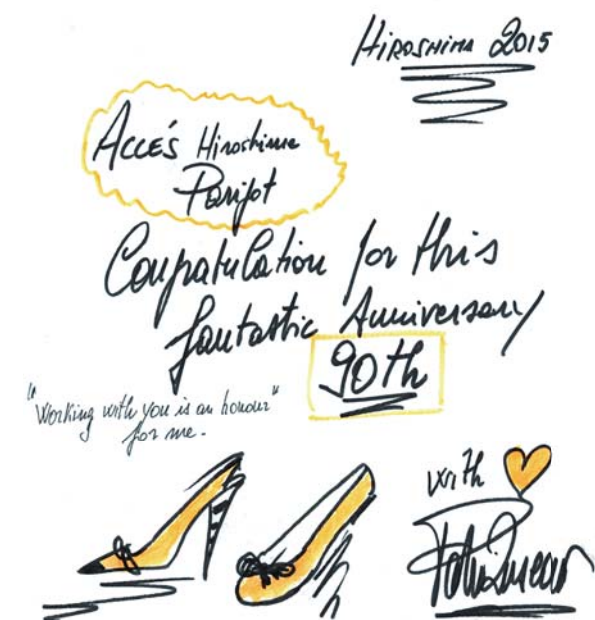 Hiroshima 2015
Acce's Hiroshima
Parigot
Congratulation for this
fantastic Anniversary
90th
"Working with you is an honour"
for me.
with